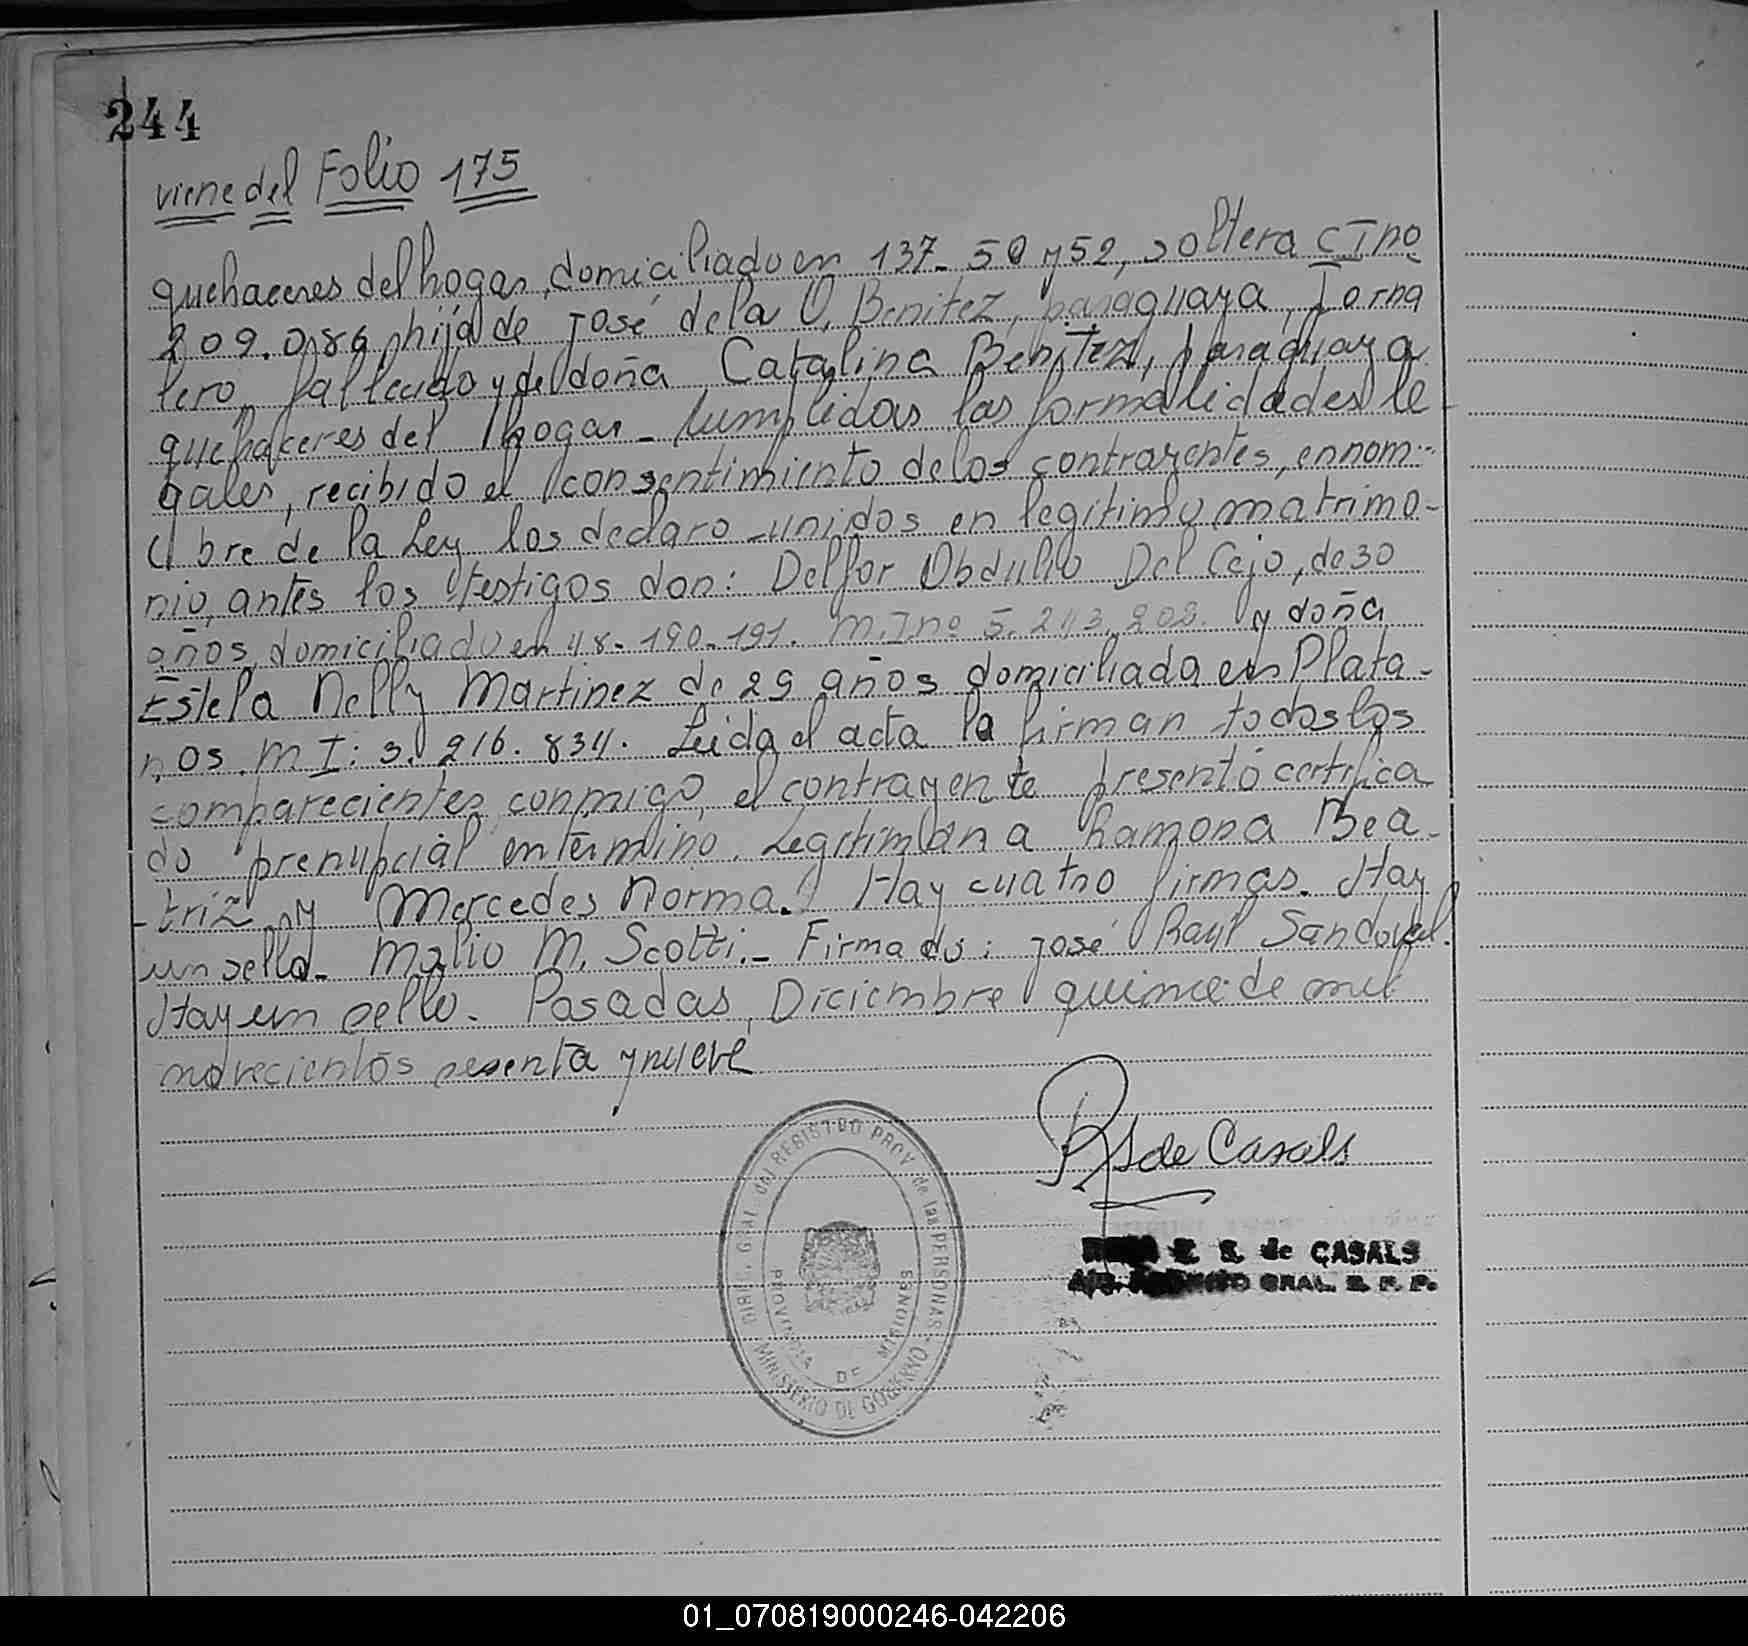 244
viene del Folio 175
quehaceres del hogar, domiciliado en 137-50 y 52, soltera C I no
209.086 hija de José de la O. Benitez, paraguaya, Jorna
lero, fallecido y de doña Catalina Benitez, paraguaya
quehaceres del hogar - Cumplidas las formalidades le
gales, recibido el consentimiento de los contrayentes, en nom-
bre de la Ley los declaro unidos en legítimo matrimo-
nio, antes los testigos don: Delfor Obdulio Del Cejo, de 30
años, domiciliado en 48-190-191. M.I.no 5.243.202. y doña
Estela Nelly Martinez de 29 años domiciliada en Plata-
nos. M I: 3.216.834. Leida el acta la firman todos los
comparecientes conmigo, el contrayente presentó certifica
do prenupcial en término. Legitiman a Ramona Bea-
triz y Mercedes Norma. Hay cuatro firmas. Hay
un sello - Malio M. Scotti.- Firmado: José Raúl Sandoval.
Hay un sello. Posadas, Diciembre quince de mil
novecientos sesenta y nueve
de Casals
DIRC. Gral. del REGISTRO PROV. de las PERSONAS
MINISTERIO DE GOBIERNO
PROVINCIA DE MISIONES
E. S. de CASALS
GRAL. R. P. P.
01_070819000246-042206